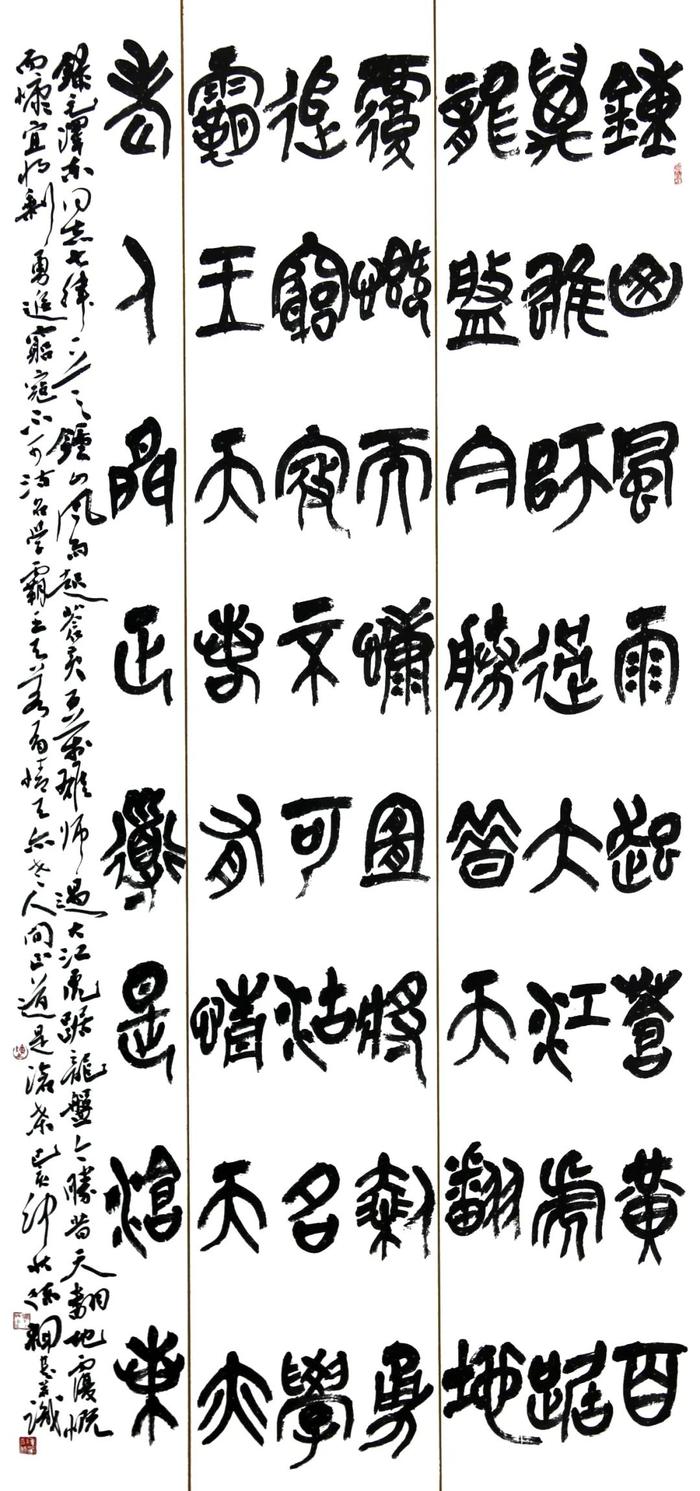 鍾山風雨起蒼黃百
萬雄師過大江虎踞
龍盤今勝昔天翻地
覆慨而慷宜將剩勇
追窮寇不可沽名學
霸王天若有情天亦
老人間正道是滄桑
錄毛澤東同志七律一首之鐘山風雨起蒼黃百萬雄師過大江虎踞龍盤今勝昔天翻地覆慨
而慷宜將剩勇追窮寇不可沽名學霸王天若有情天亦老人間正道是滄桑